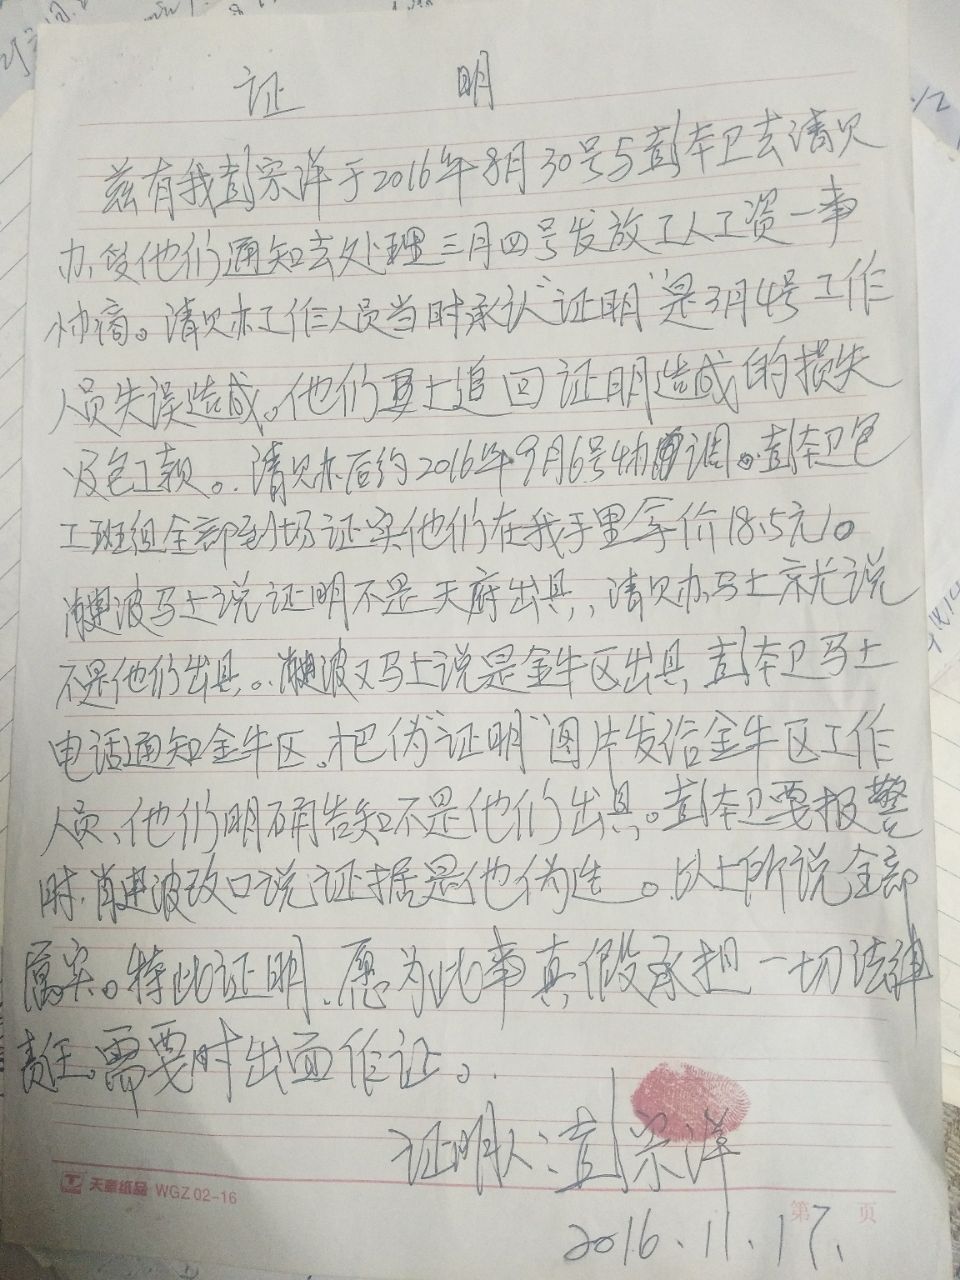 证 明
兹有我彭宗洋于2016年8月30号与彭本卫去清欠
办,他们通知去处理三月四号发放工人工资一事
协商。清欠办工作人员当时承认"证明"是3月4号工作
人员失误造成。他们马上追回证明造成的损失
及包工款。清欠办后约2016年9月6号协调。彭本卫包
工班组全部到场证实他们在我手里拿价18.5元/。
波马上说证明不是天府出具,清欠办马上就说
不是他们出具。波又马上说是金牛区出具,彭本卫马上
电话通知金牛区。把伪"证明"图片发给金牛区工作
人员、他们明确告知不是他们出具。彭本卫要报警
时,肖建波改口说,证据是他伪造。以上所说全部
属实。特此证明,愿为此事真假承担一切法律
责任。需要时出面作证。
证明人:彭宗洋
天章纸品 WGZ 02-16
第 页
2016.11.17.